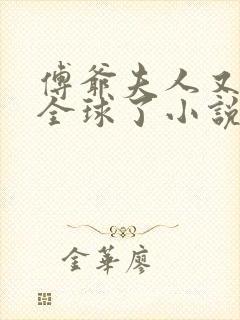 傅爺夫人又
全球了小說
金華廖